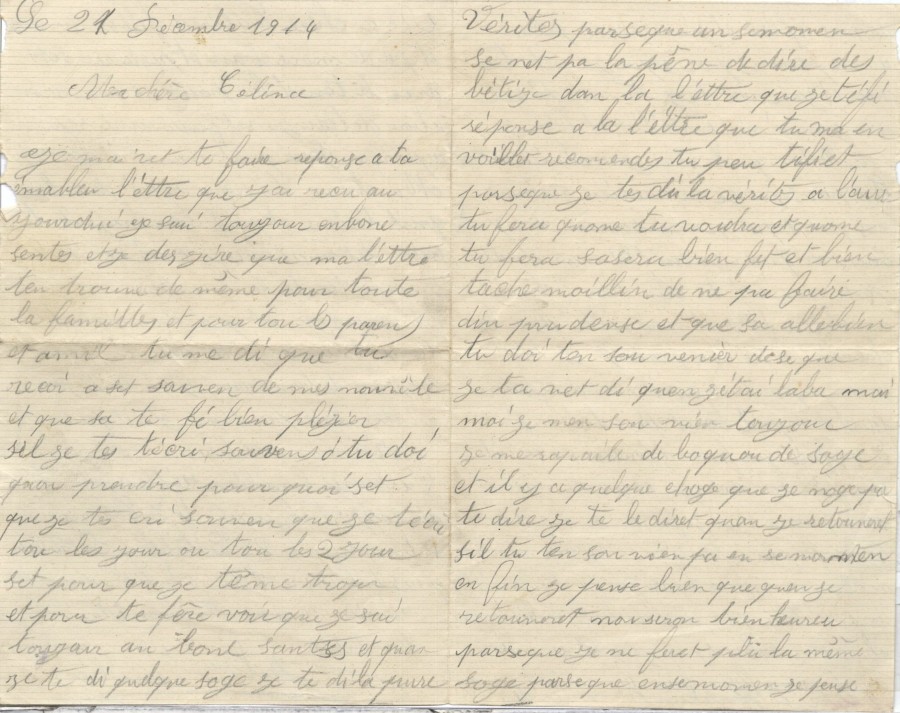 Le 21 Décembre 1914
Ma chère Céline
ze mai net te faire reponse a ta
émableu l'éttre que z'ai recu au
yourdhui ze sui touzour en bone
sentes et ze dezzire que ma l'éttre
ten trouve de même pour toute
la familles et pour tou les paren
et amil tu me di que tu
recoi a set souven de mes nouvèle
et que sa te fé bien plézier
sil ze tes técri souvens ó tu doi
quon prendre pour quoi set
que ze tes cri souven que ze técri
tou les zour ou tou les 2 zour
set pour que ze téme trop
et pour te fére voir que ze sui
touzour au bone santes et quan
ze te di quelque soze ze te di la pure
Vérites parseque an se momen
se net pa la péne de dire des
bétize dan la l'éttre que ze té fé
réponse a la l'éttre que tu ma en
voilles recomendes tu peu tifiet
parseque ze tes di la vérites a l'aure
tu fera quome tu voudra et quome
tu fera sa sera bien fét et bien
tache moillin de ne pa faire
din prudense et que sa alle bien
tu doi ten sou venier dese que
ze ta vet di quen z'étai laba mai
moi ze men sou vien touzour
ze me rapaile de boquou de soze
et il y a quelque choze que ze noze pa
te dire ze te le diret quan ze retourneret
sil tu ten sou vien pa en se momen
en fin ze pense bien que quen ze
retourneret nou seron bien heureu
parseque ze ne feret plu la même
soze parseque en se momen ze pense